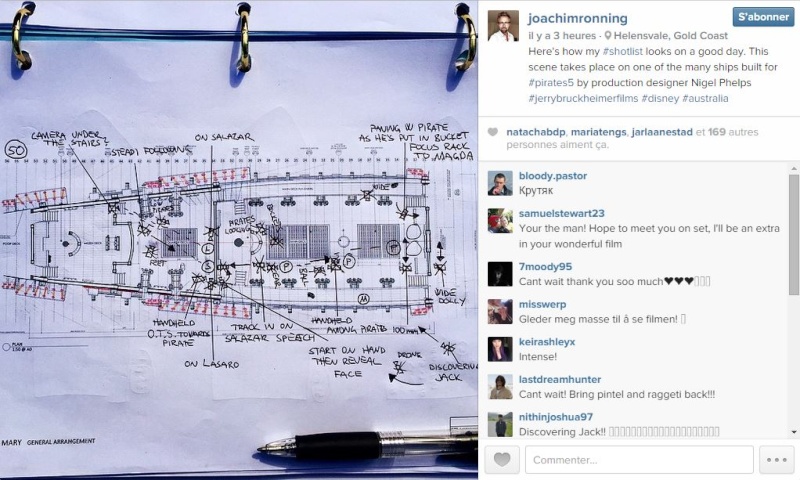 50
CAMERA UNDER
THE STAIRS?
STEADI FOLLOWING
ON SALAZAR
PANNING W PIRATE
AS HE'S PUT IN BUCKET
FOCUS RACK
TO MAGDA
WIDE
PIRATES
LOOKING
FEET
L
S
P
P
M
WIDE
DOLLY
HANDHELD
O.T.S. TOWARDS
PIRATE
ON LASARO
TRACK IN ON
SALAZAR SPEECH
HANDHELD
AMONG PIRATES 100mm
START ON HAND
THEN REVEAL
FACE
DRONE
DISCOVERING
JACK
PLAN
MARY GENERAL ARRANGEMENT
joachimronning
S'abonner
il y a 3 heures · Helensvale, Gold Coast
Here's how my #shotlist looks on a good day. This
scene takes place on one of the many ships built for
#pirates5 by production designer Nigel Phelps
#jerrybruckheimerfilms #disney #australia
natachabdp, mariatengs, jarlaanestad et 169 autres
personnes aiment ça.
bloody.pastor
Крутяк
samuelstewart23
Your the man! Hope to meet you on set, I'll be an extra
in your wonderful film
7moody95
Cant wait thank you soo much♥♥♥
misswerp
Gleder meg masse til å se filmen!
keirashleyx
Intense!
lastdreamhunter
Cant wait! Bring pintel and raggeti back!!!
nithinjoshua97
Discovering Jack!!
Commenter...